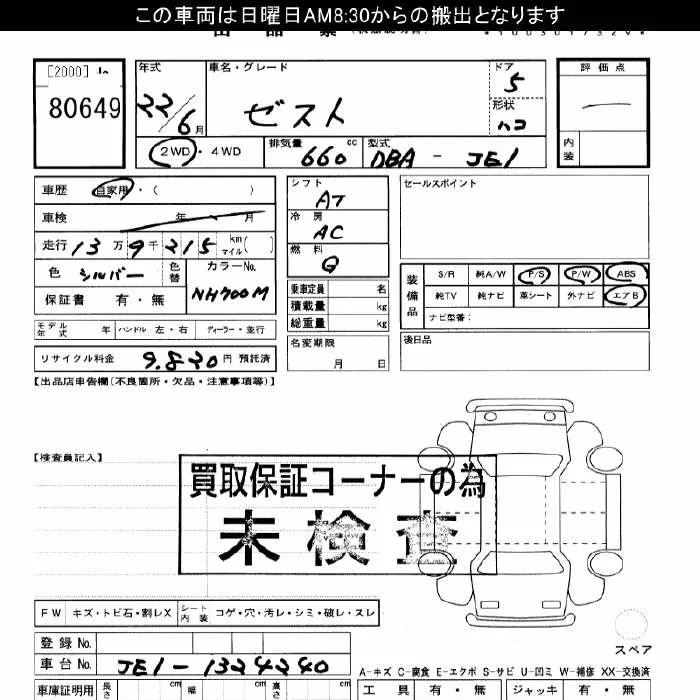 この車両は日曜日AM8:30からの搬出となります
[2000]
80649
年式 車名・グレード ドア 評価点
22/6月 ゼスト 5
形状 ハコ
2WD・4WD 排気量 660 cc 型式 DBA - JE1 内装
車歴 自家用・( )
車検 年 月
走行 13万9千215 km マイル( )
色 シルバー 色替 カラーNo. NH700M
保証書 有・無
モデル年式 年 ハンドル 左・右 ディーラー・並行
リサイクル料金 9.820円 預託済
シフト AT
冷房 AC
燃料 G
乗車定員 名
積載量 kg
総重量 kg
名変期限
月 日
セールスポイント
装備品 S/R 純A/W P/S P/W ABS
純TV 純ナビ 革シート 外ナビ エアB
ナビ型番:
後日品
【出品店申告欄(不良箇所・欠品・注意事項等)】
【検査員記入】
買取保証コーナーの為
未検査
FW キズ・トビ石・割レX シート内装 コゲ・穴・汚レ・シミ・破レ・スレ
スペア
登録No.
車台No. JE1-1324240
A-キズ C-腐食 E-エクボ S-サビ U-凹ミ W-補修 XX-交換済
車庫証明用 長さ cm 幅 cm 高さ cm 工具 有・無 ジャッキ 有・無